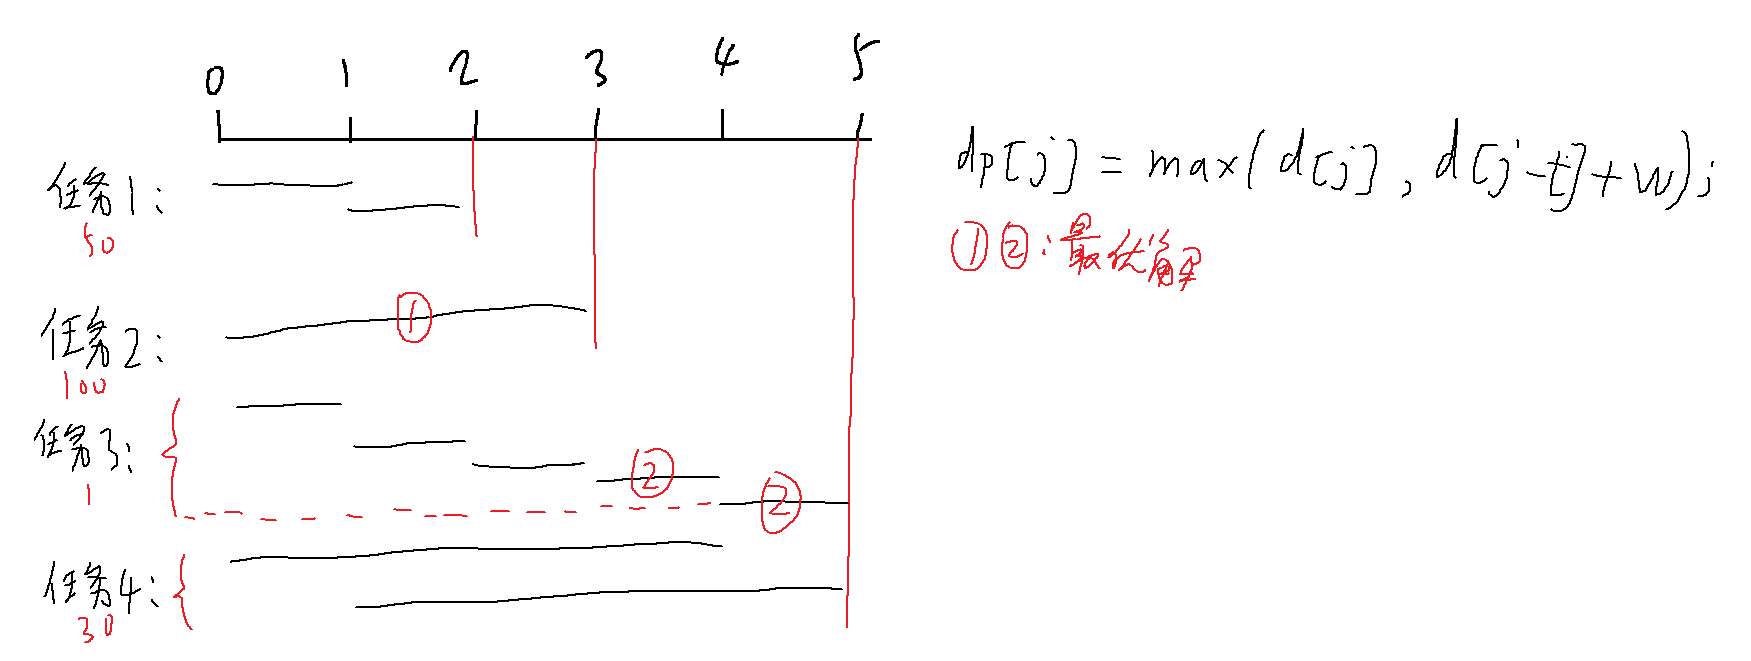 0 1 2 3 4 5
任务1:
50
任务2:
100
任务3:
1
任务4:
30
①
②
②
dp[j] = max(d[j], d[j-t]+w);
①②:最优解